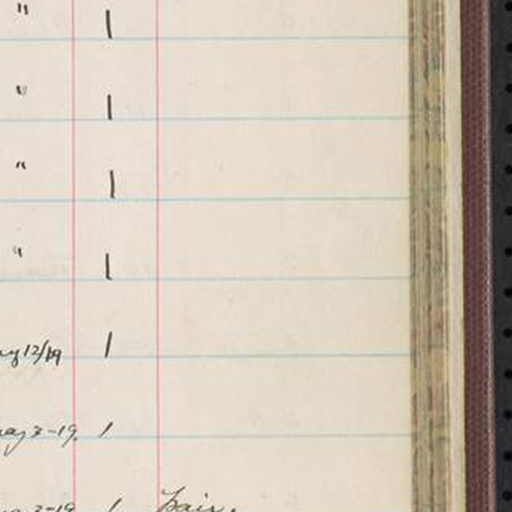 " 1
" 1
" 1
" 1
12/19 1
3-19. 1
3-19 1 Fair.